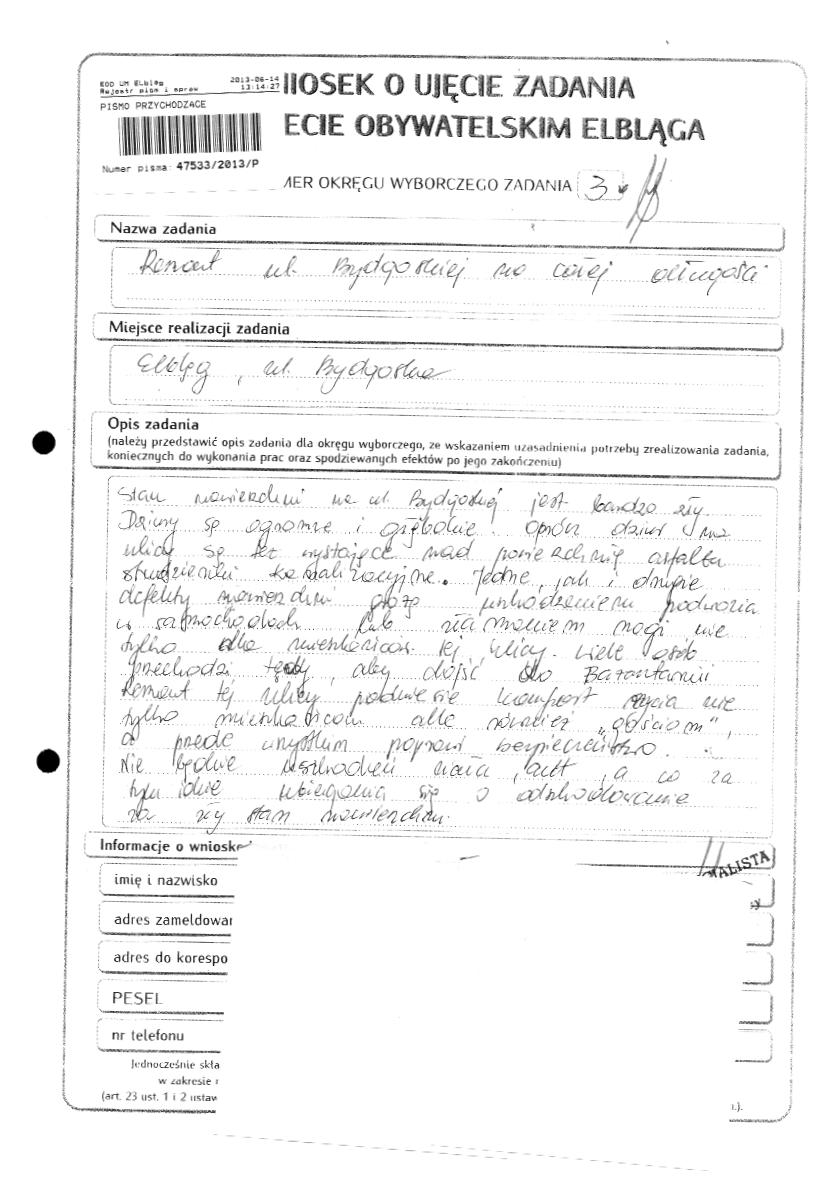 EOD UM Elbląg 2013-06-14
Rejestr pism i spraw 13:14:27
PISMO PRZYCHODZĄCE
Numer pisma: 47533/2013/P
IOSEK O UJĘCIE ZADANIA
ECIE OBYWATELSKIM ELBLĄGA
MER OKRĘGU WYBORCZEGO ZADANIA 3
Nazwa zadania
Remont ul. Bydgoskiej na całej długości
Miejsce realizacji zadania
Elbląg, ul. Bydgoska
Opis zadania
(należy przedstawić opis zadania dla okręgu wyborczego, ze wskazaniem uzasadnienia potrzeby zrealizowania zadania,
koniecznych do wykonania prac oraz spodziewanych efektów po jego zakończeniu)
Stan nawierzchni na ul. Bydgoskiej jest bardzo zły
Dziury są ogromne i głębokie. Oprócz dziur na
ulicy są też wystające nad powierzchnię asfaltu
studzienki kanalizacyjne. Jedne, jak i drugie
defekty nawierzchni grożą uszkodzeniem podwozia
w samochodach lub złamaniem nogi nie
tylko dla mieszkańców tej ulicy. Wiele osób
przechodzi tędy, aby dojść do Bażantarni
Remont tej ulicy podniesie komfort życia nie
tylko mieszkańcom ale również „gościom",
a przede wszystkim poprawi bezpieczeństwo.
Nie będzie uszkodzeń ciała, aut, a co za
tym idzie ubiegania się o odszkodowanie
za zły stan nawierzchni.
Informacje o wniosk
MALISTA
imię i nazwisko
adres zameldowan
adres do korespo
PESEL
nr telefonu
Jednocześnie skła
w zakresie
(art. 23 ust. 1 i 2 ustaw